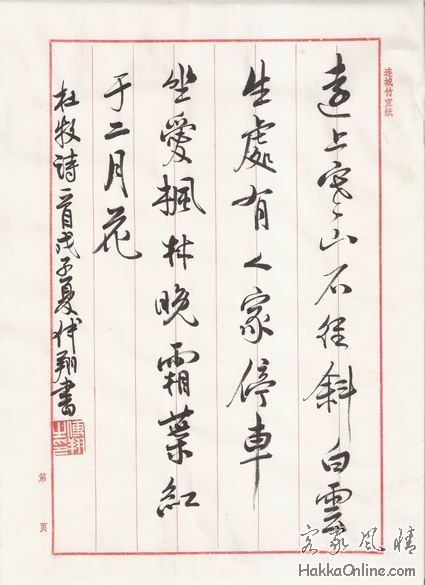 遠上寒山石徑斜白雲
生處有人家停車
坐愛楓林晚霜葉紅
于二月花
杜牧诗一首戊子夏伟翔書
连城竹宣纸
第 页
客家風情
HakkaOnline.com